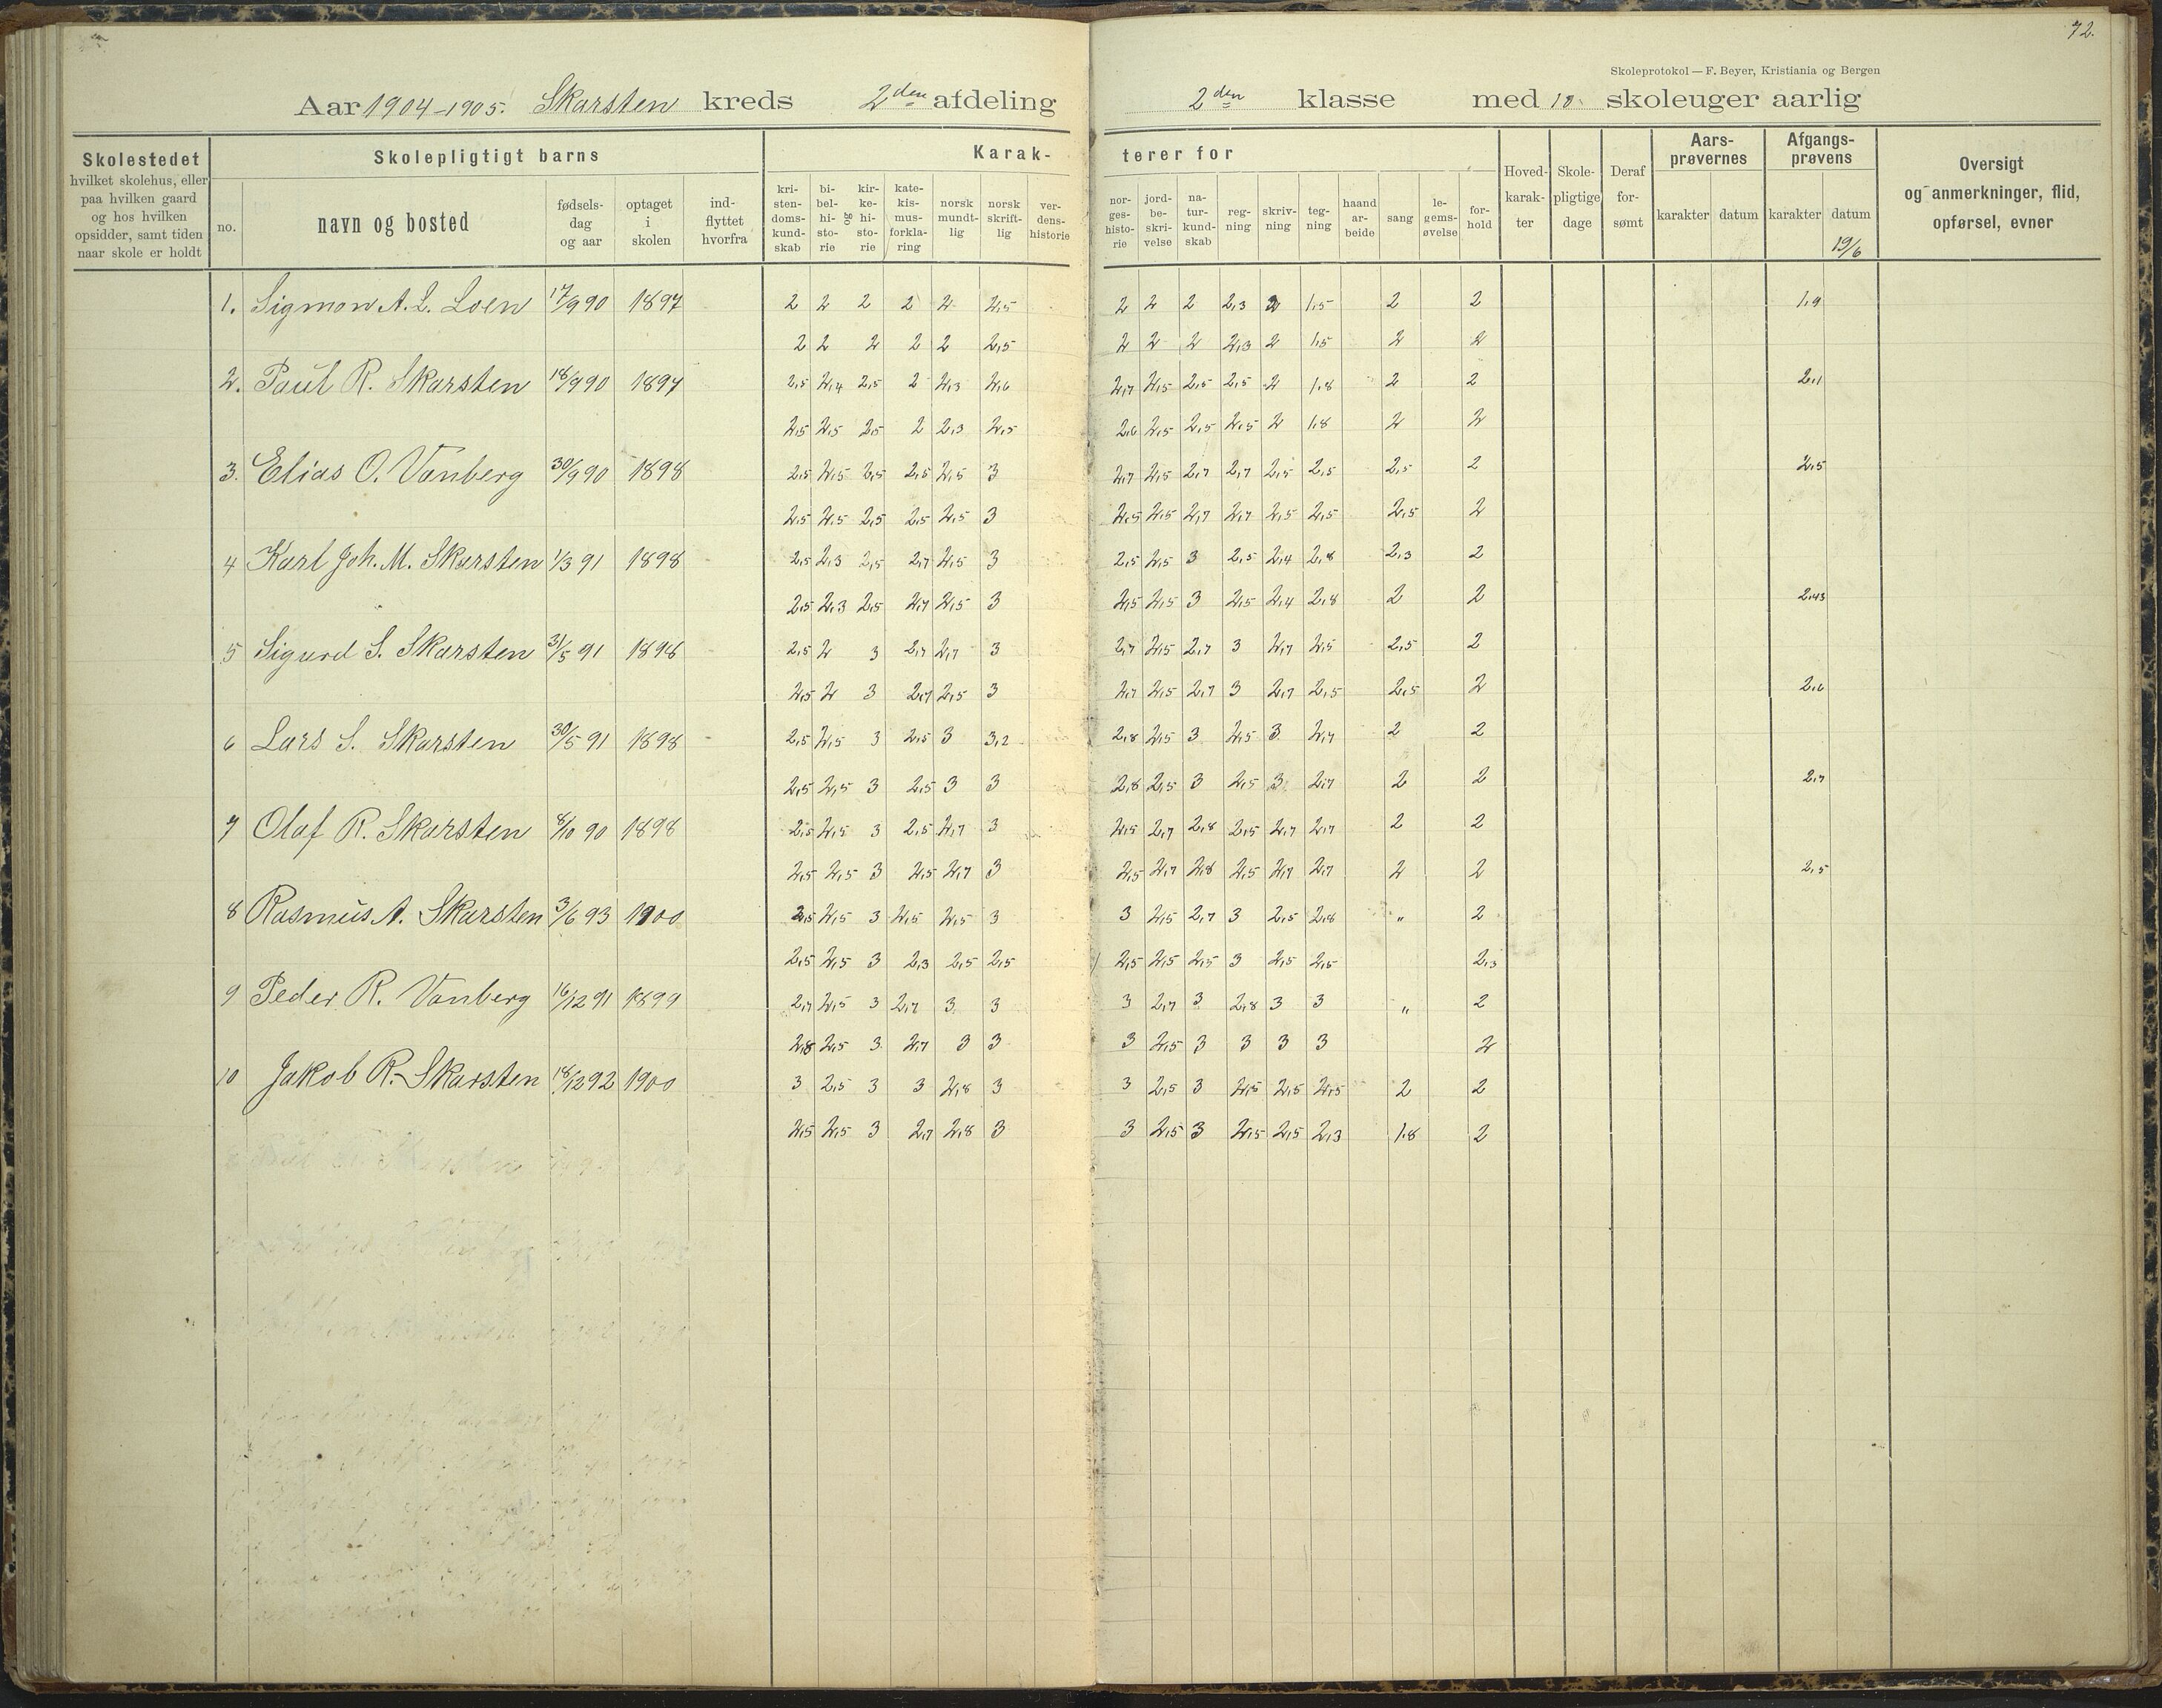 72.
Skoleprotokol — F. Beyer, Kristiania og Bergen
Aar 1904-1905. Skarsten kreds 2den afdeling 2den klasse med 18 skoleuger aarlig
Skolestedet hvilket skolehus, eller paa hvilken gaard og hos hvilken opsidder, samt tiden naar skole er holdt
Skolepligtigt barns
no. navn og bosted fødsels-dag og aar optaget i skolen ind-flyttet hvorfra
Karak-terer for
kri-sten-doms-kund-skab bi-bel-hi-sto-rie og kir-ke-hi-sto-rie kate-kis-mus-forkla-ring norsk mundt-lig norsk skrift-lig ver-dens-historie
nor-ges-histo-rie jord-be-skri-velse na-tur-kund-skab reg-ning skriv-ning teg-ning haand ar-beide sang le-gems-øvelse for-hold
Hoved-karak-ter Skole-pligtige dage Deraf for-sømt
Aars-prøvernes karakter datum
Afgangs-prøvens karakter datum 19/6
Oversigt og anmerkninger, flid, opførsel, evner
1. Sigmon A. L. Loen 17/9 90 1897 2 2 2 2 2 2,5 2 2 2 2,3 2 1,5 2 2 1,9
2 2 2 2 2 2,5 2 2 2 2,3 2 1,5 2 2
2. Paul R. Skarsten 18/9 90 1897 2,5 2,4 2,5 2 2,3 2,6 2,7 2,5 2,5 2,5 2 1,8 2 2 2,1
2,5 2,5 2,5 2 2,3 2,5 2,6 2,5 2,5 2,5 2 1,8 2 2
3. Elias O. Vanberg 30/9 90 1898 2,5 2,5 2,5 2,5 2,5 3 2,7 2,5 2,7 2,7 2,5 2,5 2,5 2 2,5
2,5 2,5 2,5 2,5 2,5 3 2,5 2,5 2,7 2,7 2,5 2,5 2,5 2
4 Karl Joh. M. Skarsten 1/3 91 1898 2,5 2,3 2,5 2,7 2,5 3 2,5 2,5 3 2,5 2,4 2,8 2,3 2
2,5 2,3 2,5 2,7 2,5 3 2,5 2,5 3 2,5 2,4 2,8 2 2 2,43
5 Sigurd S. Skarsten 31/5 91 1898 2,5 2 3 2,7 2,7 3 2,7 2,5 2,7 3 2,7 2,5 2,5 2
2,5 2 3 2,7 2,5 3 2,7 2,5 2,7 3 2,7 2,5 2,5 2 2,6
6 Lars S. Skarsten 30/5 91 1898 2,5 2,5 3 2,5 3 3,2 2,8 2,5 3 2,5 3 2,7 2 2
2,5 2,5 3 2,5 3 3 2,8 2,5 3 2,5 3 2,7 2 2 2,7
7 Olaf R. Skarsten 8/10 90 1898 2,5 2,5 3 2,5 2,7 3 2,5 2,7 2,8 2,5 2,7 2,7 2 2
2,5 2,5 3 2,5 2,7 3 2,5 2,7 2,8 2,5 2,7 2,7 2 2 2,5
8 Rasmus A. Skarsten 3/6 93 1900 2,5 2,5 3 2,5 2,5 3 3 2,5 2,7 3 2,5 2,8 " 2
2,5 2,5 3 2,3 2,5 2,5 2,5 2,5 2,5 3 2,5 2,5 2,3
9 Peder R. Vanberg 16/12 91 1899 2,7 2,5 3 2,7 3 3 3 2,7 3 2,8 3 3 " 2
2,8 2,5 3 2,7 3 3 3 2,5 3 3 3 3 2
10 Jakob R. Skarsten 18/12 92 1900 3 2,5 3 3 2,8 3 3 2,5 3 2,5 2,5 2,5 2 2
2,5 2,5 3 2,7 2,8 3 3 2,5 3 2,5 2,5 2,3 1,8 2